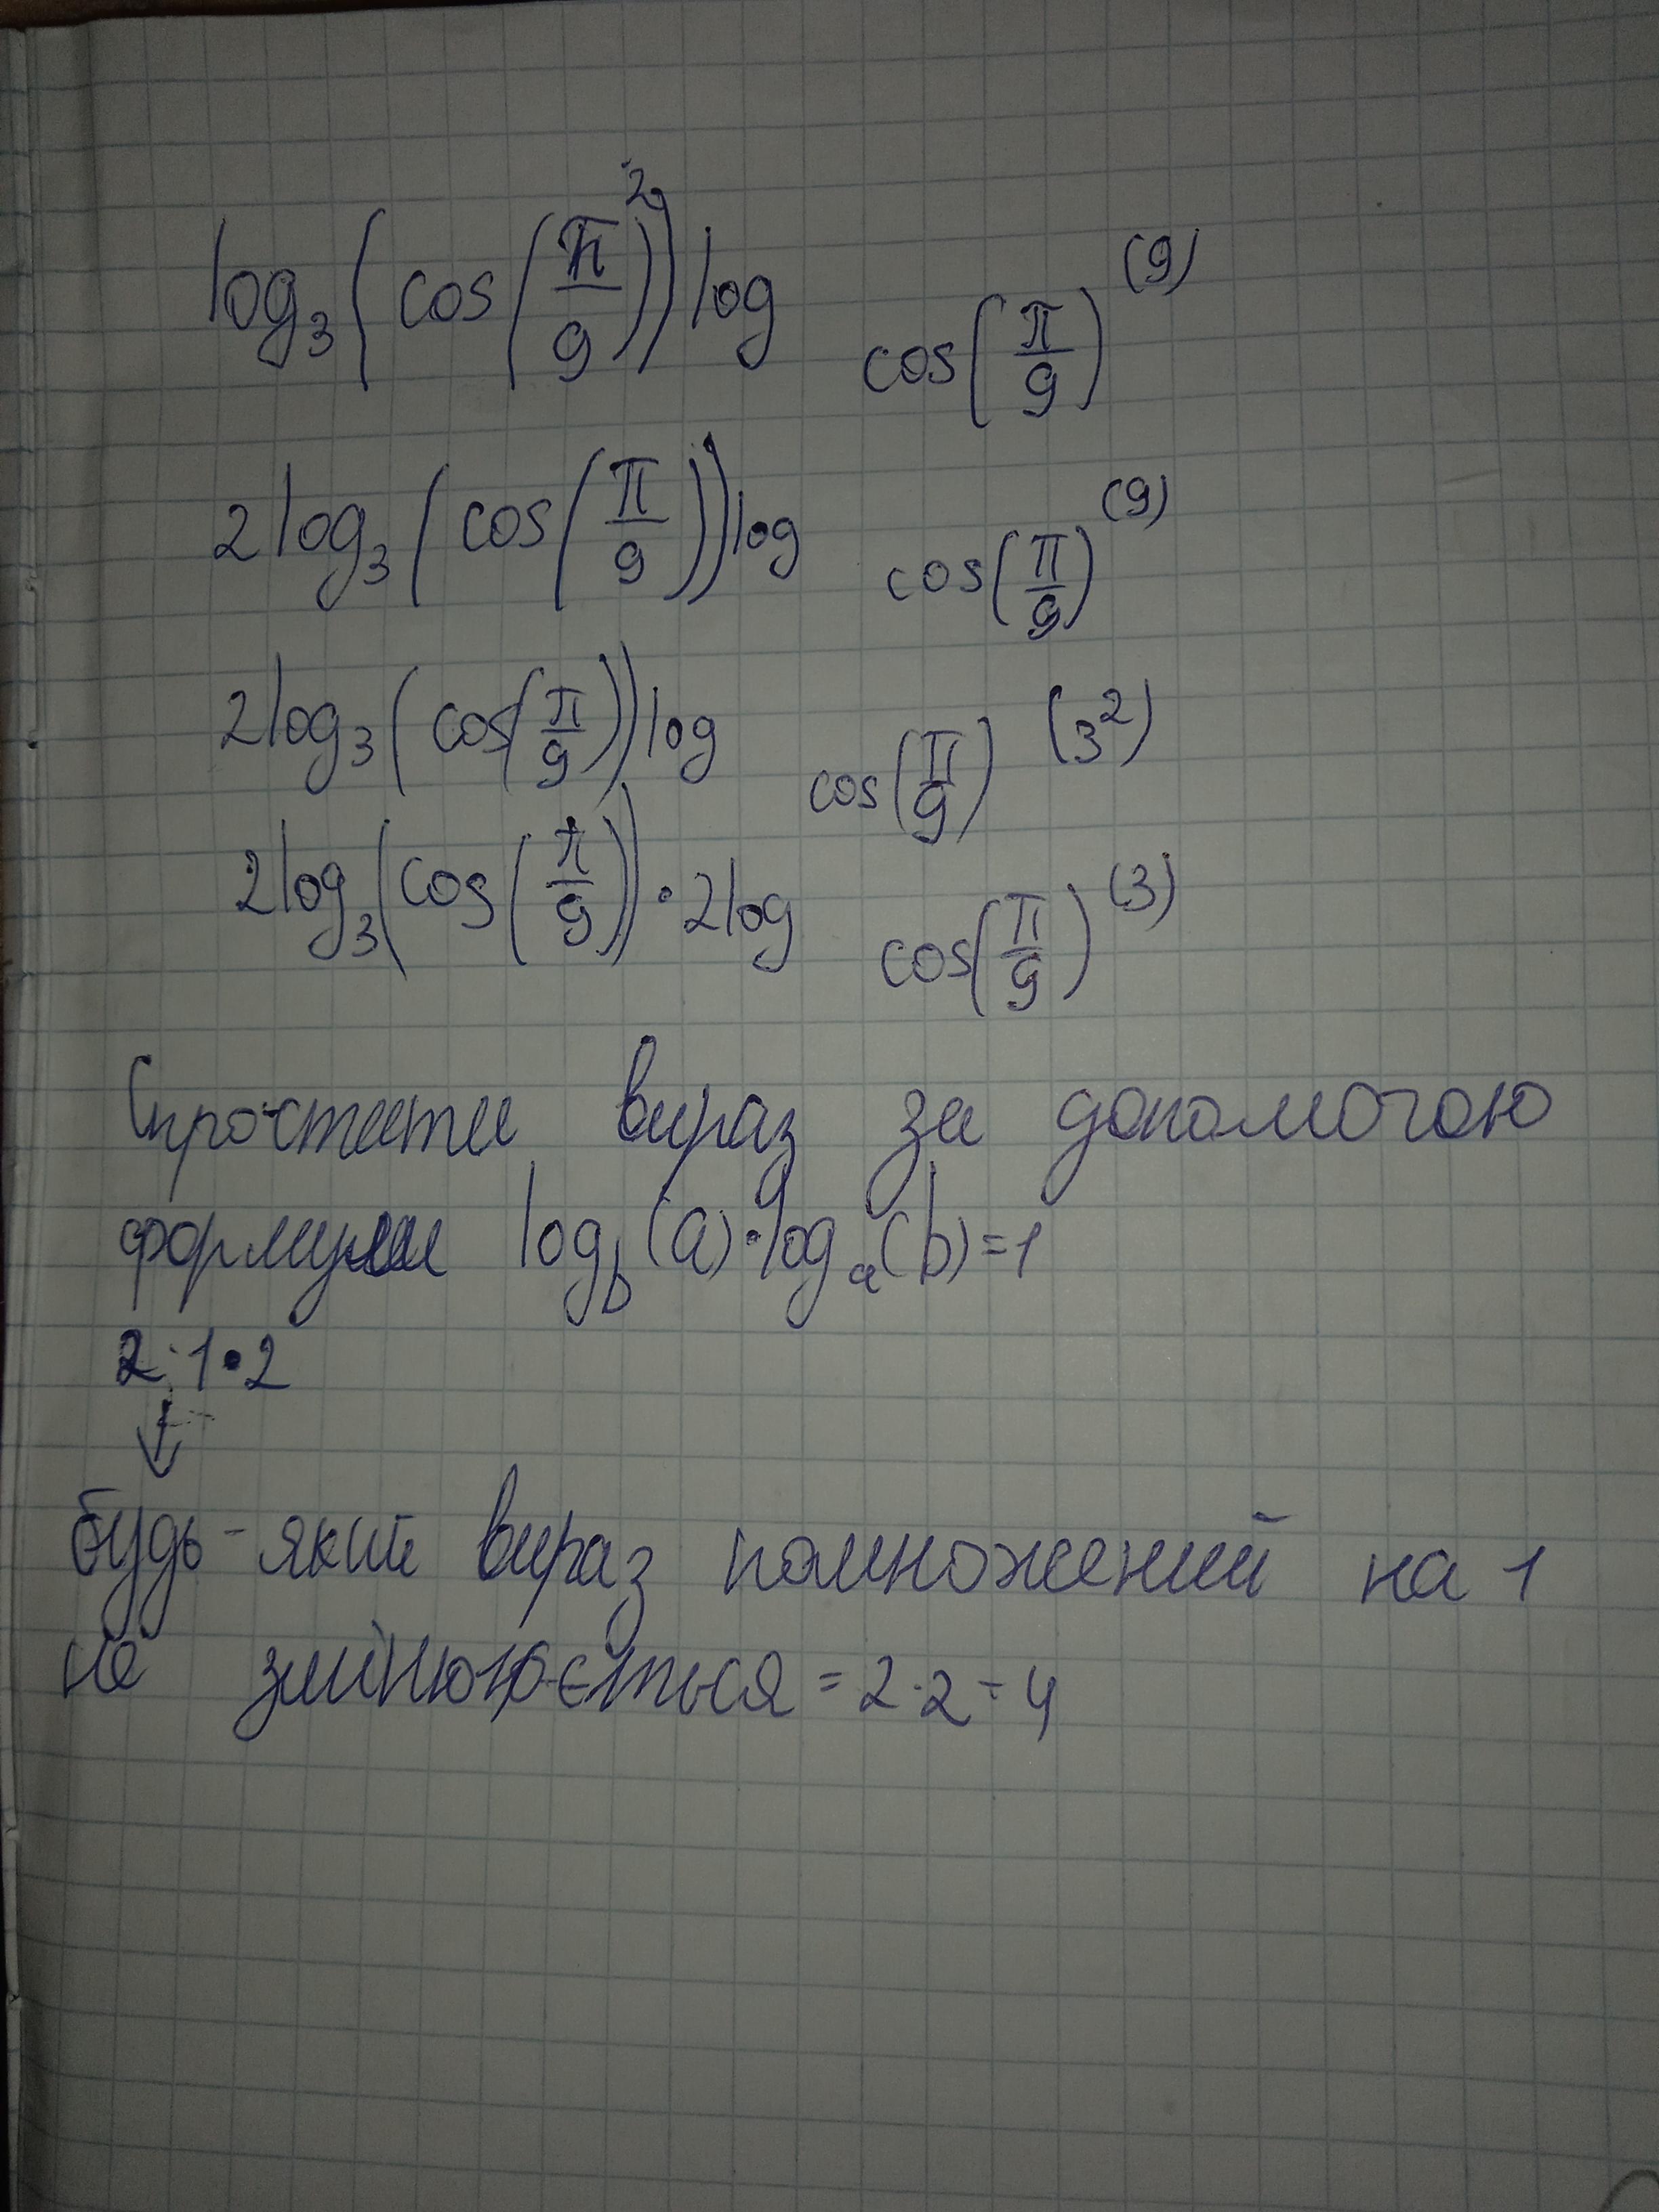 log₃(cos(π/9)²)log cos(π/9) (9)
2log₃(cos(π/9))log cos(π/9) (9)
2log₃(cos(π/9))log cos(π/9) (3²)
2log₃(cos(π/9))·2log cos(π/9) (3)
Спростити вираз за допомогою
формули log_b(a)·log_a(b)=1
2·1·2
↓
будь-який вираз помножений на 1
не змінюється = 2·2=4